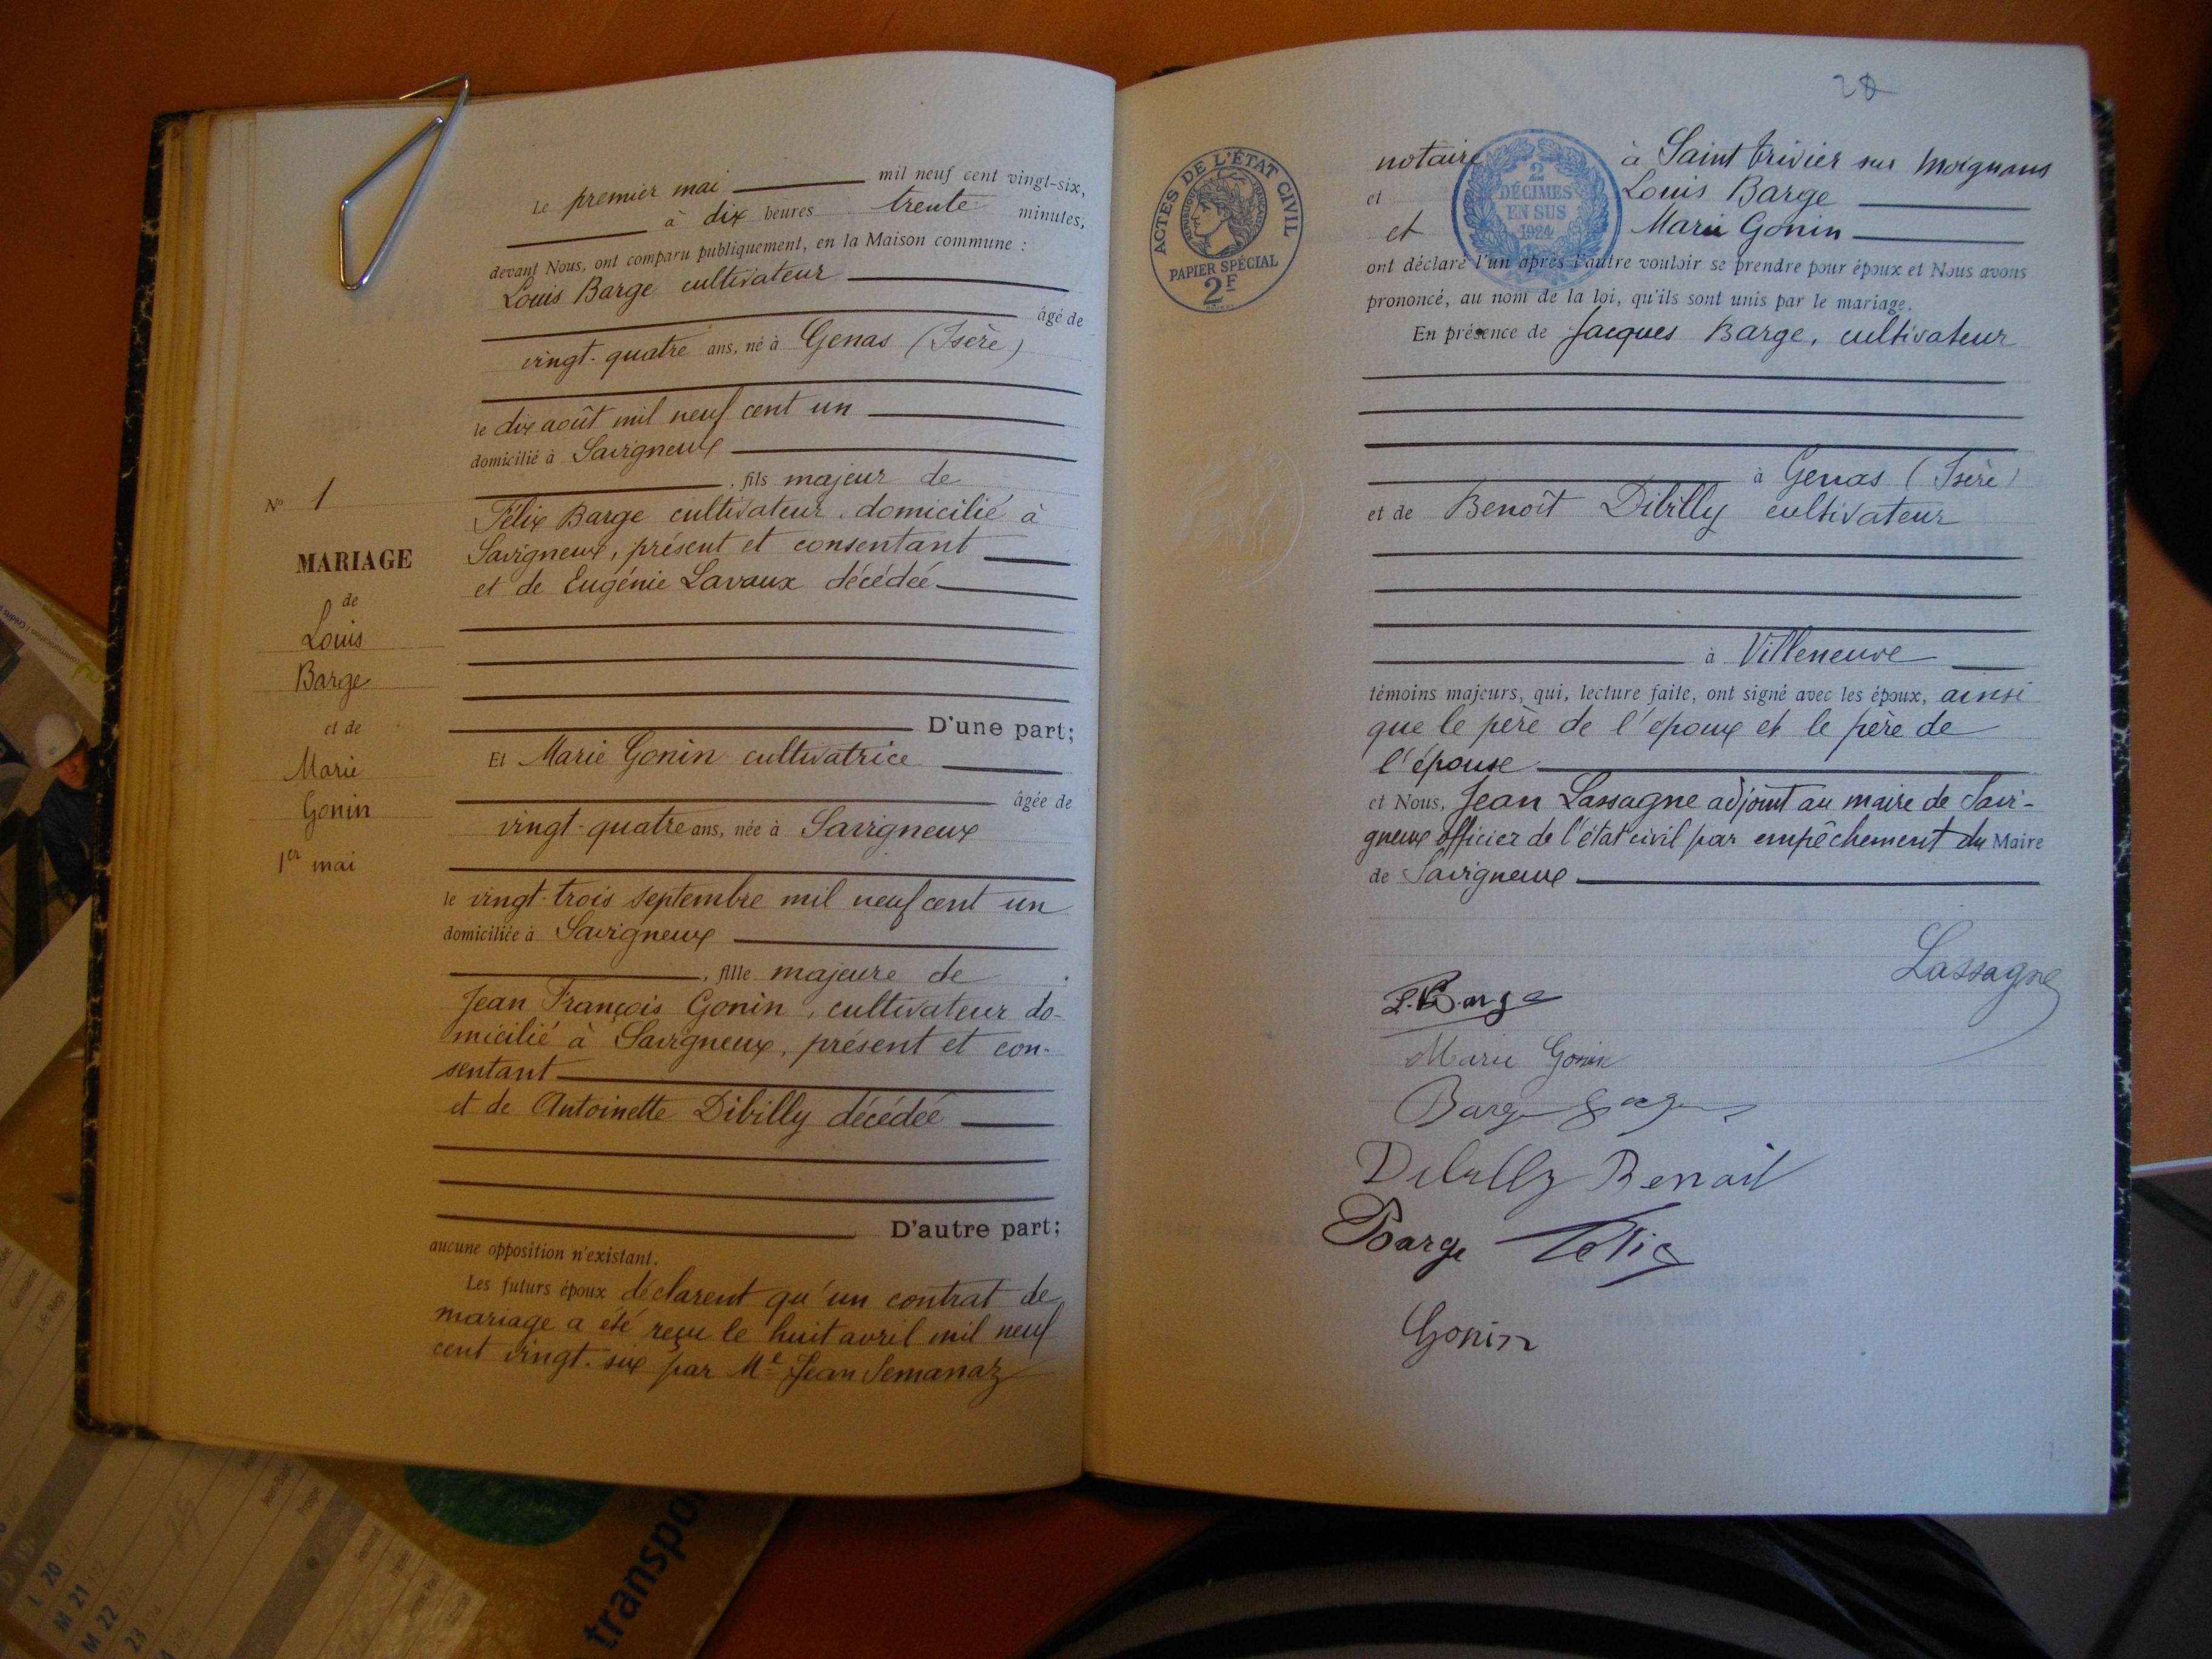 N° 1
MARIAGE
de
Louis
Barge
et de
Marie
Gonin
1er mai
Le premier mai mil neuf cent vingt-six,
à dix heures trente minutes,
devant Nous, ont comparu publiquement, en la Maison commune :
Louis Barge cultivateur
âgé de
vingt-quatre ans, né à Genas (Isère)
le dix août mil neuf cent un
domicilié à Savigneux
, fils majeur de
Félix Barge cultivateur domicilié à
Savigneux, présent et consentant
et de Eugénie Lavaux décédée
D'une part;
Et Marie Gonin cultivatrice
âgée de
vingt-quatre ans, née à Savigneux
le vingt-trois septembre mil neuf cent un
domiciliée à Savigneux
, fille majeure de
Jean François Gonin, cultivateur do-
micilié à Savigneux, présent et con-
sentant
et de Antoinette Dibilly décédée
D'autre part;
aucune opposition n'existant.
Les futurs époux déclarent qu'un contrat de
mariage a été reçu le huit avril mil neuf
cent vingt-six par Me Jean Semanaz
ACTES DE L'ÉTAT CIVIL
PAPIER SPÉCIAL
2F
2
DÉCIMES
EN SUS
1924
notaire à Saint Trivier sur Moignans
et Louis Barge
et Marie Gonin
ont déclaré l'un après l'autre vouloir se prendre pour époux et Nous avons
prononcé, au nom de la loi, qu'ils sont unis par le mariage.
En présence de Jacques Barge, cultivateur
à Genas (Isère)
et de Benoît Dibilly cultivateur
à Villeneuve
témoins majeurs, qui, lecture faite, ont signé avec les époux, ainsi
que le père de l'époux et le père de
l'épouse
et Nous, Jean Lassagne adjoint au maire de Savi-
gneux officier de l'état civil par empêchement du Maire
de Savigneux
Lassagne
L. Barge
Marie Gonin
Barge
Dibilly Benoit
Barge Félix
Gonin
transpo
L 20
M 21
M 22
23